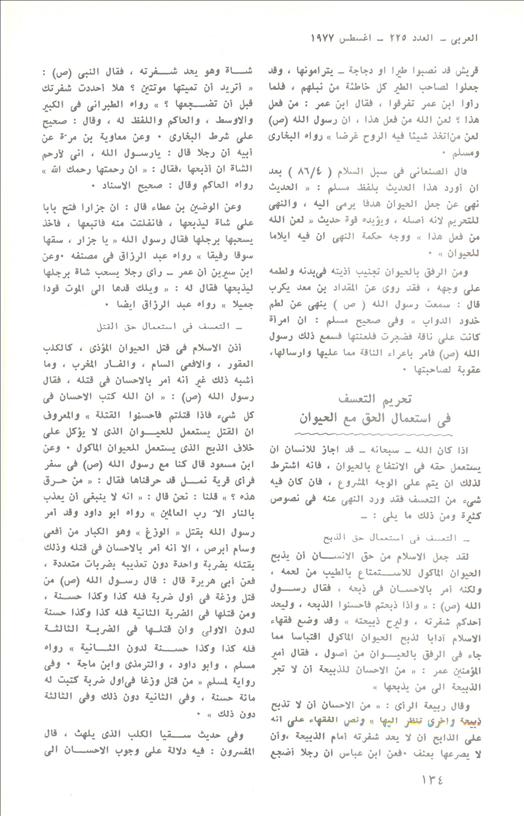 العربى ــ العدد ٢٢٥ ــ اغسطس ١٩٧٧
قريش قد نصبوا طيرا او دجاجة ــ يترامونها ، وقد
جعلوا لصاحب الطير كل خاطئة من نبلهم ، فلما
رأوا ابن عمر تفرقوا ، فقال ابن عمر : من فعل
هذا ؟ لعن الله من فعل هذا ، ان رسول الله (ص)
لعن من اتخذ شيئا فيه الروح غرضا » رواه البخارى
ومسلم ٠
قال الصنعانى فى سبل السلام ( ٨٦/٤ ) بعد
ان أورد هذا الحديث بلفظ مسلم : « الحديث
نهى عن جعل الحيوان هدفا يرمى اليه ، والنهى
للتحريم لانه أصله ، ويؤيده قوة حديث « لعن الله
من فعل هذا » ووجه حكمة النهى ان فيه ايلاما
للحيوان » ٠
ومن الرفق بالحيوان تجنيب أذيته فى بدنه ولطمه
على وجهه ، فقد روى عن المقداد بن معد يكرب
قال : سمعت رسول الله ( ص ) ينهى عن لطم
خدود الدواب » وفى صحيح مسلم : ان امرأة
كانت على ناقة فضجرت فلعنتها فسمع ذلك رسول
الله (ص) فأمر باعراء الناقة مما عليها وارسالها،
عقوبة لصاحبتها ٠
تحريم التعسف
فى استعمال الحق مع الحيوان
اذا كان الله ــ سبحانه ــ قد اجاز للانسان ان
يستعمل حقه فى الانتفاع بالحيوان ، فانه اشترط
لذلك ان يتم على الوجه المشروع ، فان كان فيه
شىء من التعسف فقد ورد النهى عنه فى نصوص
كثيرة ومن ذلك ما يلى : ــ
ــ التعسف فى استعمال حق الذبح
لقد جعل الاسلام من حق الانسان أن يذبح
الحيوان الماكول للاستمتاع بالطيب من لحمه ،
ولكنه أمر بالاحسان فى ذبحه ، فقال رسول
الله (ص) : « واذا ذبحتم فأحسنوا الذبحه ، وليحد
أحدكم شفرته ، وليرح ذبيحته » وقد وضع فقهاء
الاسلام آدابا لذبح الحيوان الماكول اقتباسا مما
جاء فى الرفق بالحيوان من أصول ، فقال أمير
المؤمنين عمر : « من الاحسان للذبيحة أن لا تجر
الذبيحة الى من يذبحها »
وقال ربيعة الرأى : « من الاحسان أن لا تذبح
ذبيحة وأخرى تنظر اليها » ونص الفقهاء على انه
على الذابح أن لا يحد شفرته أمام الذبيحة ،وأن
لا يصرعها بعنف ٠فعن ابن عباس أن رجلا أضجع
شاة وهو يحد شفرته ، فقال النبى (ص) :
« أتريد أن تميتها موتتين ؟ هلا أحددت شفرتك
قبل أن تضجعها ؟ » رواه الطبرانى فى الكبير
والاوسط ، والحاكم واللفظ له ، وقال : صحيح
على شرط البخارى ٠ وعن معاوية بن مرة عن
أبيه أن رجلا قال : يارسول الله ، انى لأرحم
الشاة ان أذبحها ،فقال : « ان رحمتها رحمك الله »
رواه الحاكم وقال : صحيح الاسناد ٠
وعن الوضين بن عطاء قال : ان جزارا فتح بابا
على شاة ليذبحها ، فانفلتت منه فاتبعها ، فأخذ
يسحبها برجلها فقال رسول الله « يا جزار ، سقها
سوقا رفيقا » رواه عبد الرزاق فى مصنفه ٠وعن
ابن سيرين أن عمر ــ رأى رجلا يسحب شاة برجلها
ليذبحها فقال له : « ويلك قدها الى الموت قودا
جميلا » رواه عبد الرزاق ايضا ٠
ــ التعسف فى استعمال حق القتل
أذن الاسلام فى قتل الحيوان المؤذى ، كالكلب
العقور ، والافعى السام ، والفار المخرب ، وما
أشبه ذلك غير أنه أمر بالاحسان فى قتله ، فقال
رسول الله (ص) : « ان الله كتب الاحسان فى
كل شىء فاذا قتلتم فأحسنوا القتلة » والمعروف
ان القتل يستعمل للحيوان الذى لا يؤكل على
خلاف الذبح الذى يستعمل للحيوان الماكول ٠ وعن
ابن مسعود قال كنا مع رسول الله (ص) فى سفر
فرأى قرية نمل قد حرقناها فقال : « من حرق
هذه ؟ » قلنا : نحن قال : « انه لا ينبغى أن يعذب
بالنار الا رب العالمين » رواه ابو داود وقد أمر
رسول الله بقتل « الوزغ » وهو الكبار من أفعى
وسام أبرص ، الا أنه أمر بالاحسان فى قتله وذلك
بقتله بضربة واحدة دون تعذيبه بضربات متعددة ،
فعن أبى هريرة قال : قال رسول الله (ص) من
قتل وزغة فى أول ضربة فله كذا وكذا حسنة ،
ومن قتلها فى الضربة الثانية فله كذا وكذا حسنة
لدون الاولى وان قتلها فى الضربة الثالثة
فله كذا وكذا حسنة لدون الثانية » رواه
مسلم ، وابو داود ، والترمذى وابن ماجة ٠ وفى
رواية لمسلم « من قتل وزغا فى اول ضربة كتبت له
مائة حسنة ، وفى الثانية دون ذلك وفى الثالثة
دون ذلك » ٠
وفى حديث سقيا الكلب الذى يلهث ، قال
المفسرون : فيه دلالة على وجوب الاحسان الى
١٣٤